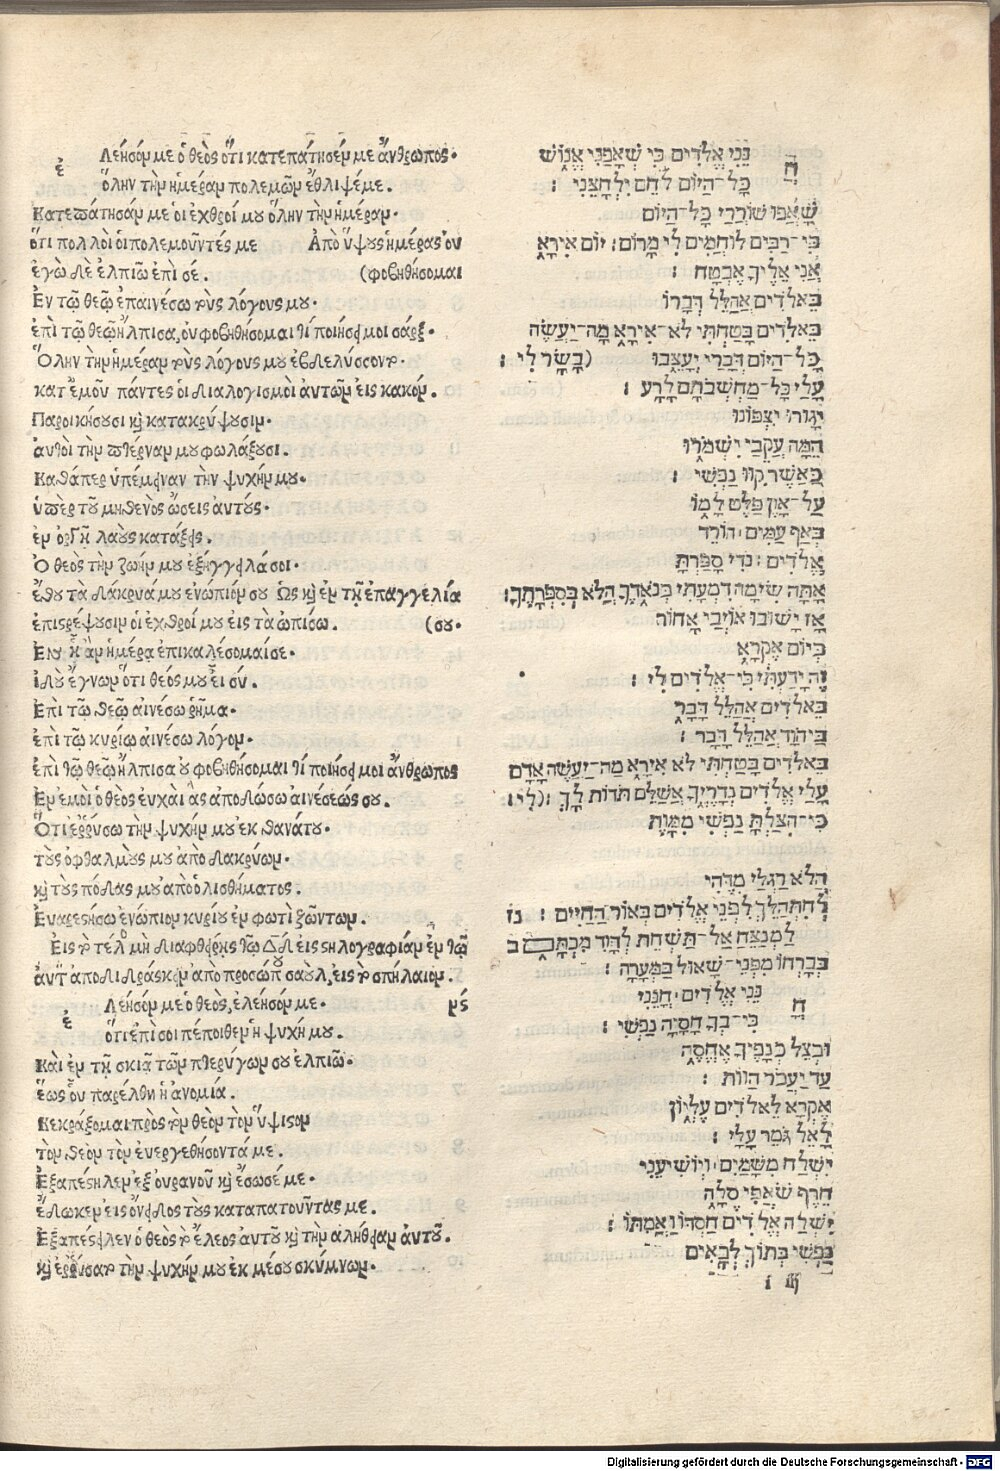 Λεησόμ με ὁ θεὸς ὅτι κατεπάτησέμ με ἄνθρωπος·
ἐ
ὅλην τὴμ ἡμέραμ πολεμῶμ ἔθλιψέμε.
Κατεπάτησάμ με ὁι ἐχθροί μου ὅλην τὴμ ἡμέραμ·
ὅτι πολλοὶ ὁι πολεμοῦντές με Ἀπὸ ὕψους ἡμέρας ὀυ
ἐγὼ δὲ ἐλπιῶ ἐπὶ σέ. (φοβηθήσομαι
Εν τῷ θεῷ ἐπαινέσω τοὺς λόγους μου·
ἐπὶ τῷ θεῷ ἤλπισα, ὀυ φοβηθήσομαι τί ποιήσει μοι σάρξ·
Ὅλην τὴμ ἡμέραμ τοὺς λόγους μου ἐβδελύσσοντο·
κατ ἐμοῦ πάντες ὁι διαλογισμοὶ ἀυτῶμ ἐις κακόμ.
Παροικήσουσι κ̀ κατακρύψουσιμ·
ἀυτοὶ τὴμ πτέρναμ μου φυλάξουσι.
Καθάπερ ὑπέμειναν τὴν ψυχήμ μου·
ὑπὲρ τοῦ μηδενὸς ὤσεις ἀυτούς·
ἐμ ὀργῇ λαοὺς κατάξεις.
Ὁ θεὸς τὴμ ζωήμ μου ἐξήγγειλά σοι·
ἔθου τὰ δάκρυά μου ἐνώπιόμ σου Ὡς κ̀ ἐμ τῇ ἐπαγγελία
ἐπιστρέψουσιμ ὁι ἐχθροί μου ἐις τὰ ὀπίσω. (σου·
Εμ ᾗ ἂμ ἡμέρᾳ ἐπικαλέσομαί σε·
ἰδοὺ ἔγνωμ ὅτι θεός μου ἐι σύ.
Επὶ τῷ θεῷ ἀινέσω ῥῆμα·
ἐπὶ τῷ κυρίῳ ἀινέσω λόγομ·
ἐπὶ τῷ θεῷ ἤλπισα ὀυ φοβηθήσομαι τί ποιήσει μοι ἄνθρωπος
Εμ ἐμοὶ ὁ θεὸς ἐυχὰι ἃς ἀποδώσω ἀινέσεώς σου.
Ὅτι ἐρρύσω τὴμ ψυχήμ μου ἐκ θανάτου·
τοὺς ὀφθαλμούς μου ἀπὸ δακρύωμ·
κ̀ τοὺς πόδας μου ἀπὸ ὀλισθήματος.
Ἐυαρεστήσω ἐνώπιομ κυρίου ἐμ φωτὶ ζώντωμ.
Εις τὸ τέλ μὴ διαφθείρῃς τῷ Δδ ἐις στηλογραφίαμ ἐμ τῷ
ἀυτ ἀποδιδράσκειμ ἀπὸ προσώπ σαούλ, ἐις τὸ σπήλαιομ.
Λεησόμ με ὁ θεὸς, ἐλεησόμ με· μς
ἐ
ὅτι ἐπὶ σοὶ πέποιθεμ ἡ ψυχή μου.
Κὰι ἐμ τῇ σκιᾷ τῶμ πτερύγωμ σου ἐλπιῶ·
ἕως οὗ παρέλθῃ ἡ ἀνομία.
Κεκράξομαι πρὸς τὸμ θεὸμ τὸμ ὕψιστομ
τὸμ θεὸμ τὸμ ἐυεργετήσοντά με.
Εξαπέστηλεμ ἐξ ὀυρανοῦ κ̀ ἔσωσέ με·
ἔδωκεμ ἐις ὄνειδος τοὺς καταπατοῦντάς με.
Εξαπέστειλεν ὁ θεὸς τὸ ἔλεος ἀυτοῦ κ̀ τὴμ ἀλήθειαμ ἀυτοῦ.
κ̀ ἐρρύσατο τὴμ ψυχήμ μου ἐκ μέσου σκύμνωμ·
חָ
נֵּנִי אֱלֹדִים כִּי שְׁאָפַנִי אֱנוֹשׁ
כָּל־הַיּוֹם לֹחֵם יִלְחָצֵנִי :
שָׁאֲפוּ שׁוֹרְרַי כָּל־הַיּוֹם
כִּי־רַבִּים לוֹחֲמִים לִי מָרוֹם: יוֹם אִירָא
אֲנִי אֵלֶיךָ אֶבְטָח :
בֵּאלֹדִים אֲהַלֵּל דְּבָרוֹ
בֵּאלֹדִים בָּטַחְתִּי לֹא אִירָא מַה־יַּעֲשֶׂה
כָּל־הַיּוֹם דְּבָרַי יְעַצֵּבוּ (בָשָׂר לִי :
עָלַי כָּל־מַחְשְׁבֹתָם לָרָע :
יָגוּרוּ יִצְפּוֹנוּ
הֵמָּה עֲקֵבַי יִשְׁמֹרוּ
כַּאֲשֶׁר קִוּוּ נַפְשִׁי :
עַל־אָוֶן פַּלֶּט לָמוֹ
בְּאַף עַמִּים הוֹרֵד
אֱלֹדִים : נֹדִי סָפַרְתָּ
אָתָּה שִׂימָה דִמְעָתִי בְנֹאדֶךָ הֲלֹא בְּסִפְרָתֶךָ:
אָז יָשׁוּבוּ אוֹיְבַי אָחוֹר
בְּיוֹם אֶקְרָא
זֶה יָדַעְתִּי כִּי־אֱלֹדִים לִי :
בֵּאלֹדִים אֲהַלֵּל דָּבָר
בַּיהוָד אֲהַלֵּל דָּבָר :
בֵּאלֹדִים בָּטַחְתִּי לֹא אִירָא מַה־יַּעֲשֶׂה אָדָם
עָלַי אֱלֹדִים נְדָרֶיךָ אֲשַׁלֵּם תּוֹדוֹת לָךְ : (לִי :
כִּי־הִצַּלְתָּ נַפְשִׁי מִמָּוֶת
הֲלֹא רַגְלַי מִדֶּחִי
לְהִתְהַלֵּךְ לִפְנֵי אֱלֹדִים בְּאוֹר הַחַיִּים : נז
לַמְנַצֵּחַ אַל־תַּשְׁחֵת לְדָוִד מִכְתָּם ב
בְּבָרְחוֹ מִפְּנֵי־שָׁאוּל בַּמְּעָרָה :
נֵּנִי אֱלֹדִים חָנֵּנִי
חָ
כִּי־בְךָ חָסָיָה נַפְשִׁי :
וּבְצֵל כְּנָפֶיךָ אֶחְסֶה
עַד יַעֲבֹר הַוּוֹת :
אֶקְרָא לֵאלֹדִים עֶלְיוֹן
לָאֵל גֹּמֵר עָלָי :
יִשְׁלַח מִשָּׁמַיִם וְיוֹשִׁיעֵנִי
חֵרֵף שֹׁאֲפִי סֶלָה
יִשְׁלַח אֱלֹדִים חַסְדּוֹ וַאֲמִתּוֹ :
נַפְשִׁי בְּתוֹךְ לְבָאִים
Digitalisierung gefördert durch die Deutsche Forschungsgemeinschaft - DFG